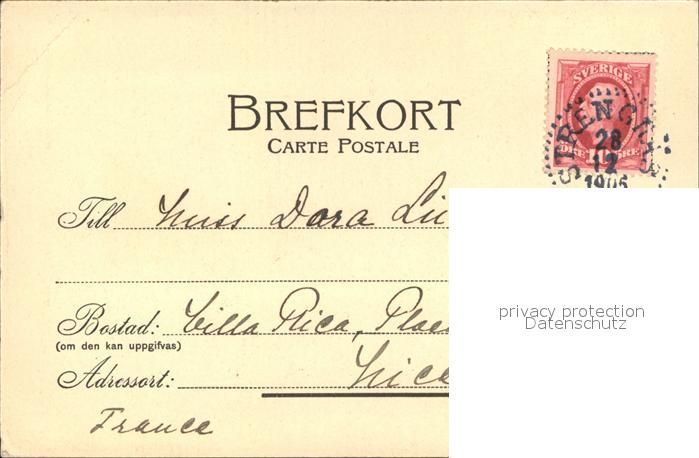 BREFKORT
CARTE POSTALE
SVERIGE
STRENGNÄS
28
12
ÖRE 10 ÖRE
Till Miss Dora
Bostad: Villa Rica,
(om den kan uppgifvas)
Adressort: Nice
France
privacy protection
Datenschutz